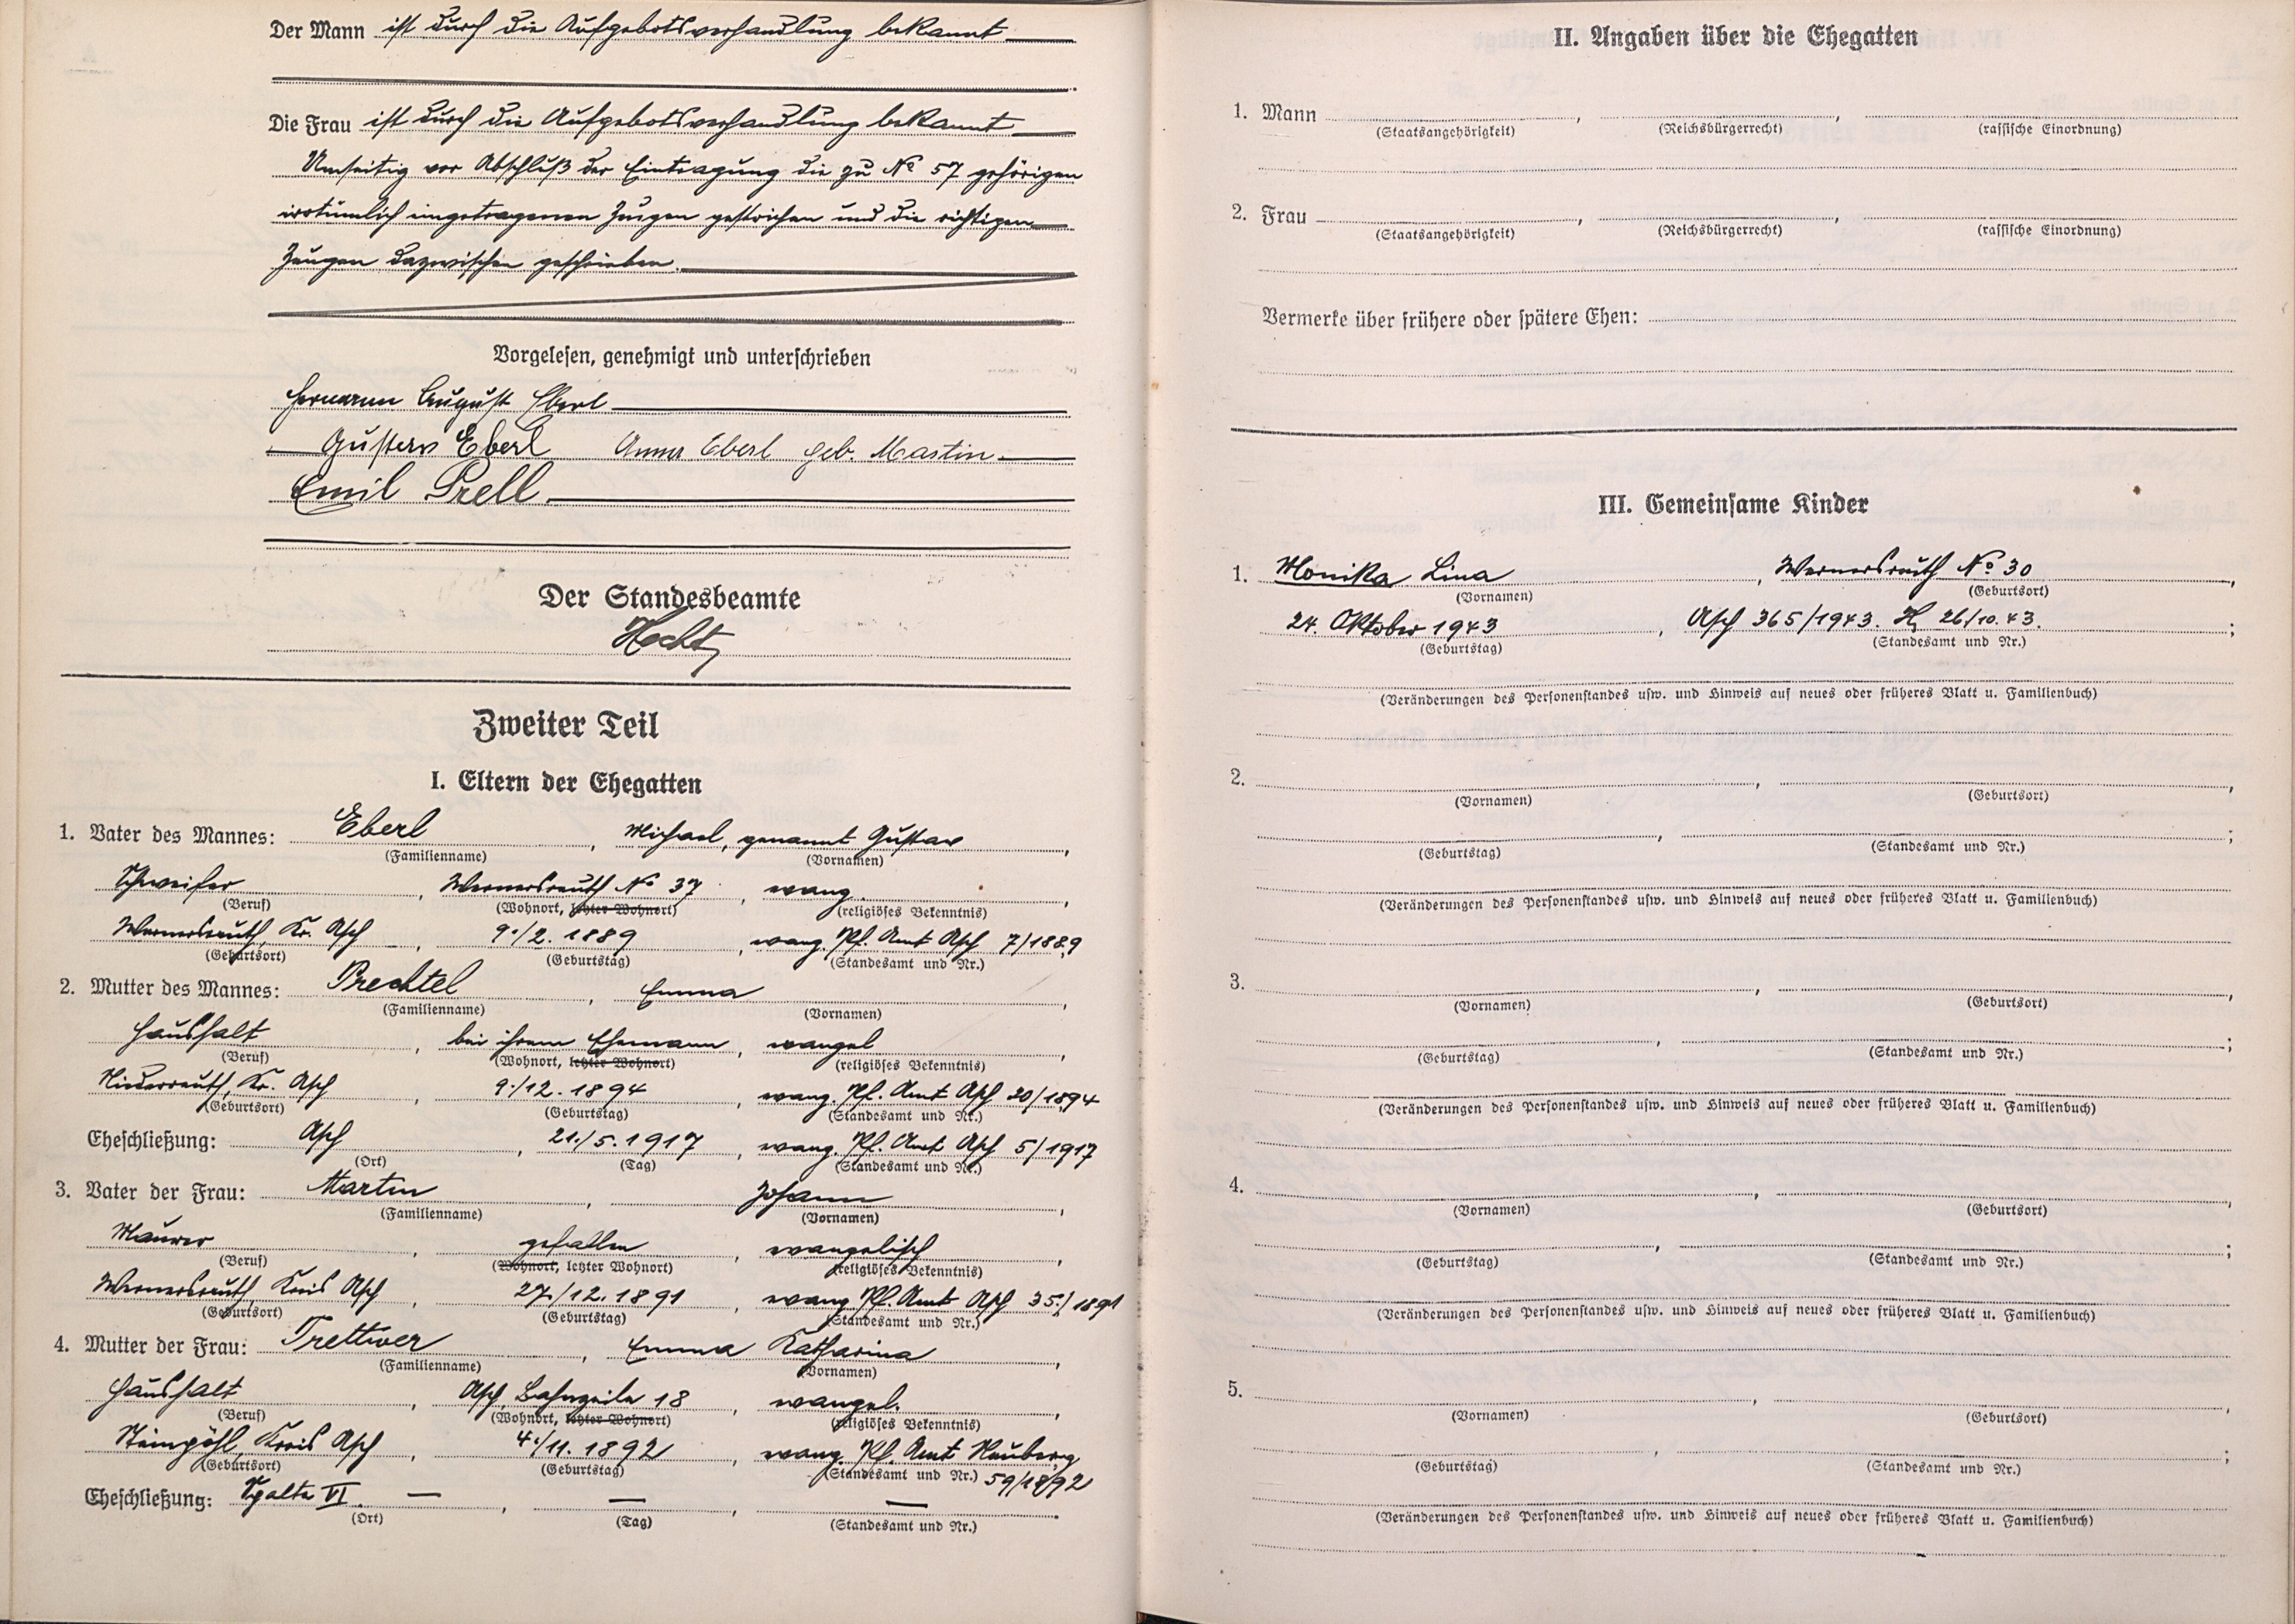 Der Mann ist durch die Aufgebotsverhandlung bekannt
Die Frau ist durch die Aufgebotsverhandlung bekannt
Umseitig vor Abschluß der Eintragung die zu No 57 gehörigen
irrtümlich eingetragenen Zeugen gestrichen und die richtigen
Zeugen dazwischen geschrieben.
Vorgelesen, genehmigt und unterschrieben
Hermann August Eberl
Gustav Eberl Anna Eberl geb. Martin
Emil Prell
Der Standesbeamte
Hecht
Zweiter Teil
I. Eltern der Ehegatten
1. Vater des Mannes: Eberl, Michael, genannt Gustav,
(Familienname) (Vornamen)
Schweifer, Wernersreuth No 37, evang.,
(Beruf) (Wohnort, letzter Wohnort) (religiöses Bekenntnis)
Wernersreuth, Kr. Asch, 9./2. 1889, evang. Pf. Amt Asch 7/1889
(Geburtsort) (Geburtstag) (Standesamt und Nr.)
2. Mutter des Mannes: Prechtel, Emma,
(Familienname) (Vornamen)
Haushalt, bei ihrem Ehemann, evangel,
(Beruf) (Wohnort, letzter Wohnort) (religiöses Bekenntnis)
Niederreuth, Kr. Asch, 9./12. 1894, evang. Pf. Amt Asch 20/1894
(Geburtsort) (Geburtstag) (Standesamt und Nr.)
Eheschließung: Asch, 21./5. 1917, evang. Pf. Amt Asch 5/1917
(Ort) (Tag) (Standesamt und Nr.)
3. Vater der Frau: Martin, Johann,
(Familienname) (Vornamen)
Maurer, gefallen, evangelisch,
(Beruf) (Wohnort, letzter Wohnort) (religiöses Bekenntnis)
Wernersreuth, Kreis Asch, 27./12. 1891, evang Pf. Amt Asch 35/1891
(Geburtsort) (Geburtstag) (Standesamt und Nr.)
4. Mutter der Frau: Trettwer, Emma Katharina,
(Familienname) (Vornamen)
Haushalt, Asch, Bahnzeile 18, evangel.,
(Beruf) (Wohnort, letzter Wohnort) (religiöses Bekenntnis)
Steinpöhl, Kreis Asch, 4./11. 1892, evang. Pf. Amt Neuberg
(Geburtsort) (Geburtstag) (Standesamt und Nr.) 59/1892
Eheschließung: Spalte VI. —, —, —.
(Ort) (Tag) (Standesamt und Nr.)
II. Angaben über die Ehegatten
1. Mann
(Staatsangehörigkeit) (Reichsbürgerrecht) (rassische Einordnung)
2. Frau
(Staatsangehörigkeit) (Reichsbürgerrecht) (rassische Einordnung)
Vermerke über frühere oder spätere Ehen:
III. Gemeinsame Kinder
1. Monika Lina, Wernersreuth No 30,
(Vornamen) (Geburtsort)
24. Oktober 1943, Asch 365/1943. H, 26/10.43.;
(Geburtstag) (Standesamt und Nr.)
(Veränderungen des Personenstandes usw. und Hinweis auf neues oder früheres Blatt u. Familienbuch)
2.
(Vornamen) (Geburtsort)
(Geburtstag) (Standesamt und Nr.)
(Veränderungen des Personenstandes usw. und Hinweis auf neues oder früheres Blatt u. Familienbuch)
3.
(Vornamen) (Geburtsort)
(Geburtstag) (Standesamt und Nr.)
(Veränderungen des Personenstandes usw. und Hinweis auf neues oder früheres Blatt u. Familienbuch)
4.
(Vornamen) (Geburtsort)
(Geburtstag) (Standesamt und Nr.)
(Veränderungen des Personenstandes usw. und Hinweis auf neues oder früheres Blatt u. Familienbuch)
5.
(Vornamen) (Geburtsort)
(Geburtstag) (Standesamt und Nr.)
(Veränderungen des Personenstandes usw. und Hinweis auf neues oder früheres Blatt u. Familienbuch)